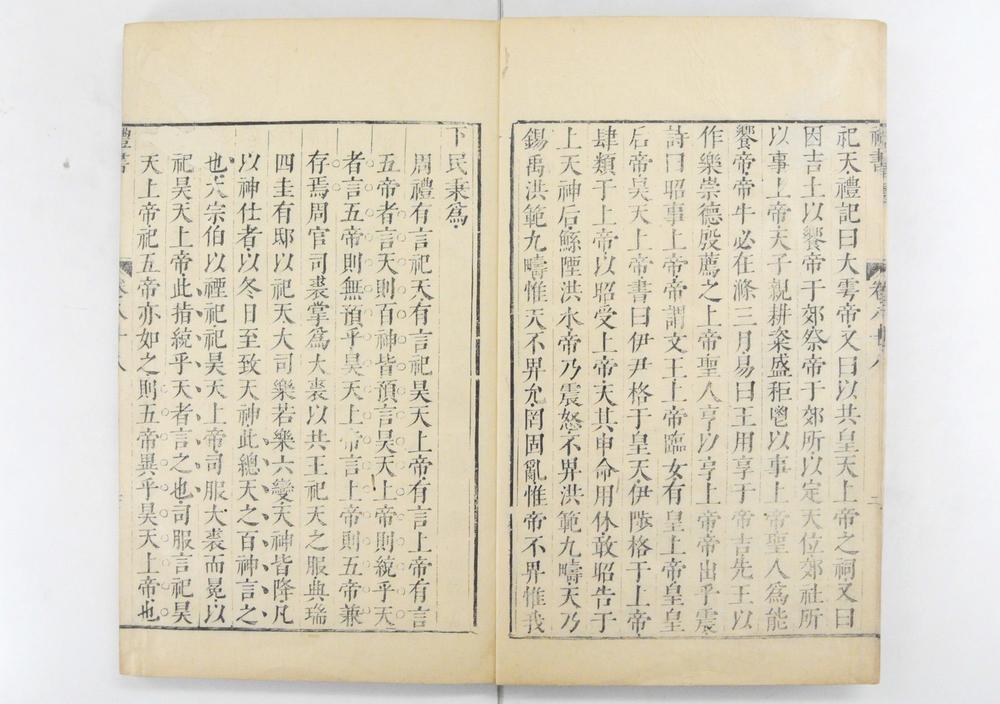 祀天禮記曰大雩帝又曰以共皇天上帝之祠又曰
因吉土以饗帝于郊祭帝于郊所以定天位郊社所
以事上帝天子親耕粢盛秬鬯以事上帝聖人爲能
饗帝帝牛必在滌三月易曰王用享于帝吉先王以
作樂崇德殷薦之上帝聖人亨以享上帝帝出乎震
詩曰昭事上帝帝謂文王上帝臨女有皇上帝皇皇
后帝昊天上帝書曰伊尹格于皇天伊陟格于上帝
肆類于上帝以昭受上帝天其申命用休敢昭告于
上天神后鯀陻洪水帝乃震怒不畀洪範九疇天乃
錫禹洪範九疇惟天不畀允罔固亂惟帝不畀惟我
下民秉爲
周禮有言祀天有言祀昊天上帝有言上帝有言
五帝者言天則百神皆預言昊天上帝則統乎天
者言五帝則無預乎昊天上帝言上帝則五帝兼
存焉周官司裘掌爲大裘以共王祀天之服典瑞
四圭有邸以祀天大司樂若樂六變天神皆降凡
以神仕者以冬日至致天神此總天之百神言之
也大宗伯以禋祀祀昊天上帝司服大裘而冕以
祀昊天上帝此指統乎天者言之也司服言祀昊
天上帝祀五帝亦如之則五帝異乎昊天上帝也
禮書
卷八十八